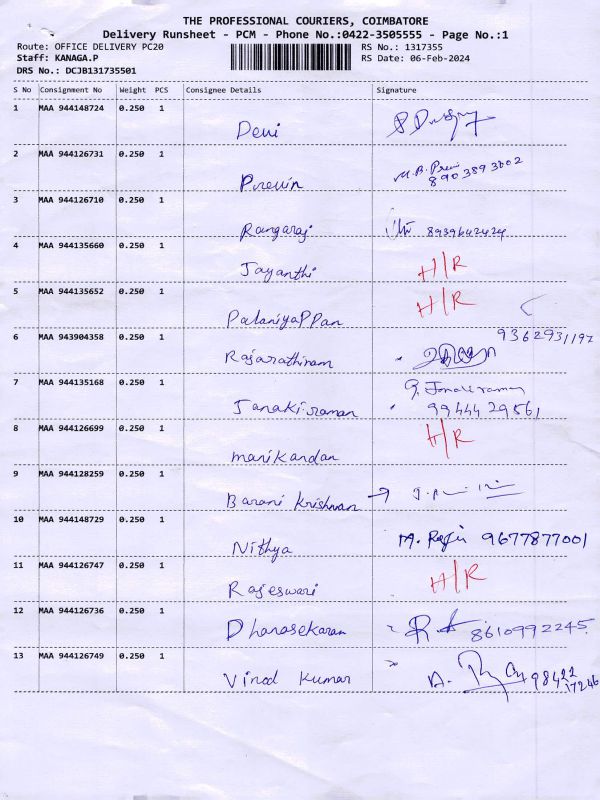 THE PROFESSIONAL COURIERS, COIMBATORE
Delivery Runsheet - PCM - Phone No.:0422-3505555 - Page No.:1
Route: OFFICE DELIVERY PC20 RS No.: 1317355
Staff: KANAGA.P RS Date: 06-Feb-2024
DRS No.: DCJB131735501
S No Consignment No Weight PCS Consignee Details Signature
1 MAA 944148724 0.250 1 Devi
2 MAA 944126731 0.250 1 Previn M.B. Previ
8903893002
3 MAA 944126710 0.250 1 Rangaraj 8939642424
4 MAA 944135660 0.250 1 Jayanthi H/R
5 MAA 944135652 0.250 1 PalaniyaPPan H/R
6 MAA 943904358 0.250 1 Rajarathinam 9362931197
7 MAA 944135168 0.250 1 Janakiraman G. Janakiraman
9944429561
8 MAA 944126699 0.250 1 manikandan H/R
9 MAA 944128259 0.250 1 Barani Krishnan →
10 MAA 944148729 0.250 1 Nithya 9677877001
11 MAA 944126747 0.250 1 Rajeswari H/R
12 MAA 944126736 0.250 1 Dhanasekaran 8610992245
13 MAA 944126749 0.250 1 Vinod Kumar 98422
17246